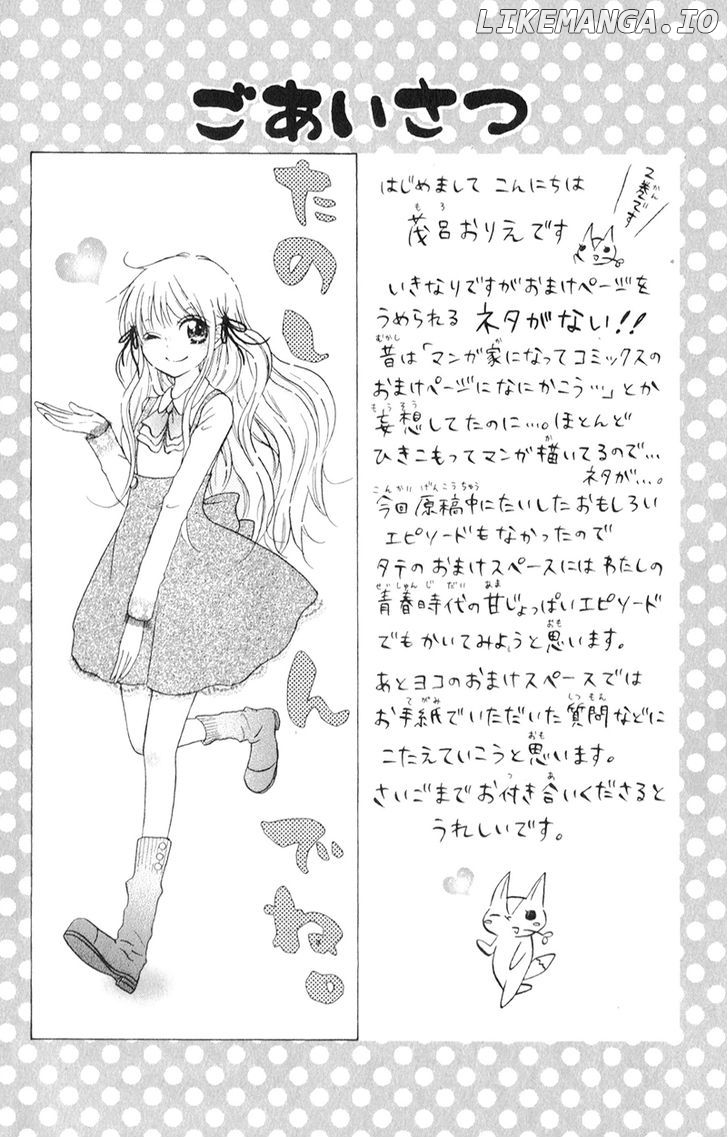 LIKEMANGA.IO
ごあいさつ
たのしんでね。
はじめまして こんにちは
2巻です
かん
茂呂おりえです
もろ
いきなりですがおまけページを
うめられる ネタがない!!
昔は「マンガ家になってコミックスの
むかし
か
おまけページになにかこう…」とか
妄想してたのに…。ほとんど
もうそう
ひきこもってマンガ描いてるので…
か
ネタが…。
今回原稿中にたいしたおもしろい
こんかい げんこうちゅう
エピソードもなかったので
タテのおまけスペースにはわたしの
青春時代の甘じょっぱいエピソード
せいしゅん じだい あま
でもかいてみようと思います。
おも
あとヨコのおまけスペースでは
お手紙でいただいた質問などに
てがみ
しつもん
こたえていこうと思います。
おも
さいごまでお付き合いくださると
つ あ
うれしいです。